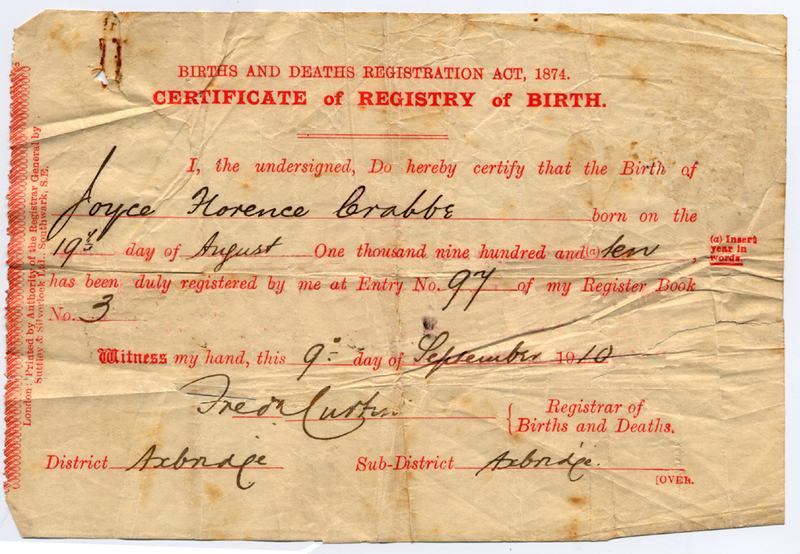 BIRTHS AND DEATHS REGISTRATION ACT, 1874.
CERTIFICATE of REGISTRY of BIRTH.
I, the undersigned, Do hereby certify that the Birth of
Joyce Florence Crabbe born on the
19th day of August One thousand nine hundred and (a) ten,
(a) Insert
year in
words.
has been duly registered by me at Entry No. 97 of my Register Book
No. 3
Witness my hand, this 9 day of September 1910
Fredk Curtin
Registrar of
Births and Deaths.
District Axbridge Sub-District Axbridge.
[OVER.
London: Printed by Authority of the Registrar General by
Suttley & Silverlock Ld., Southwark, S.E.